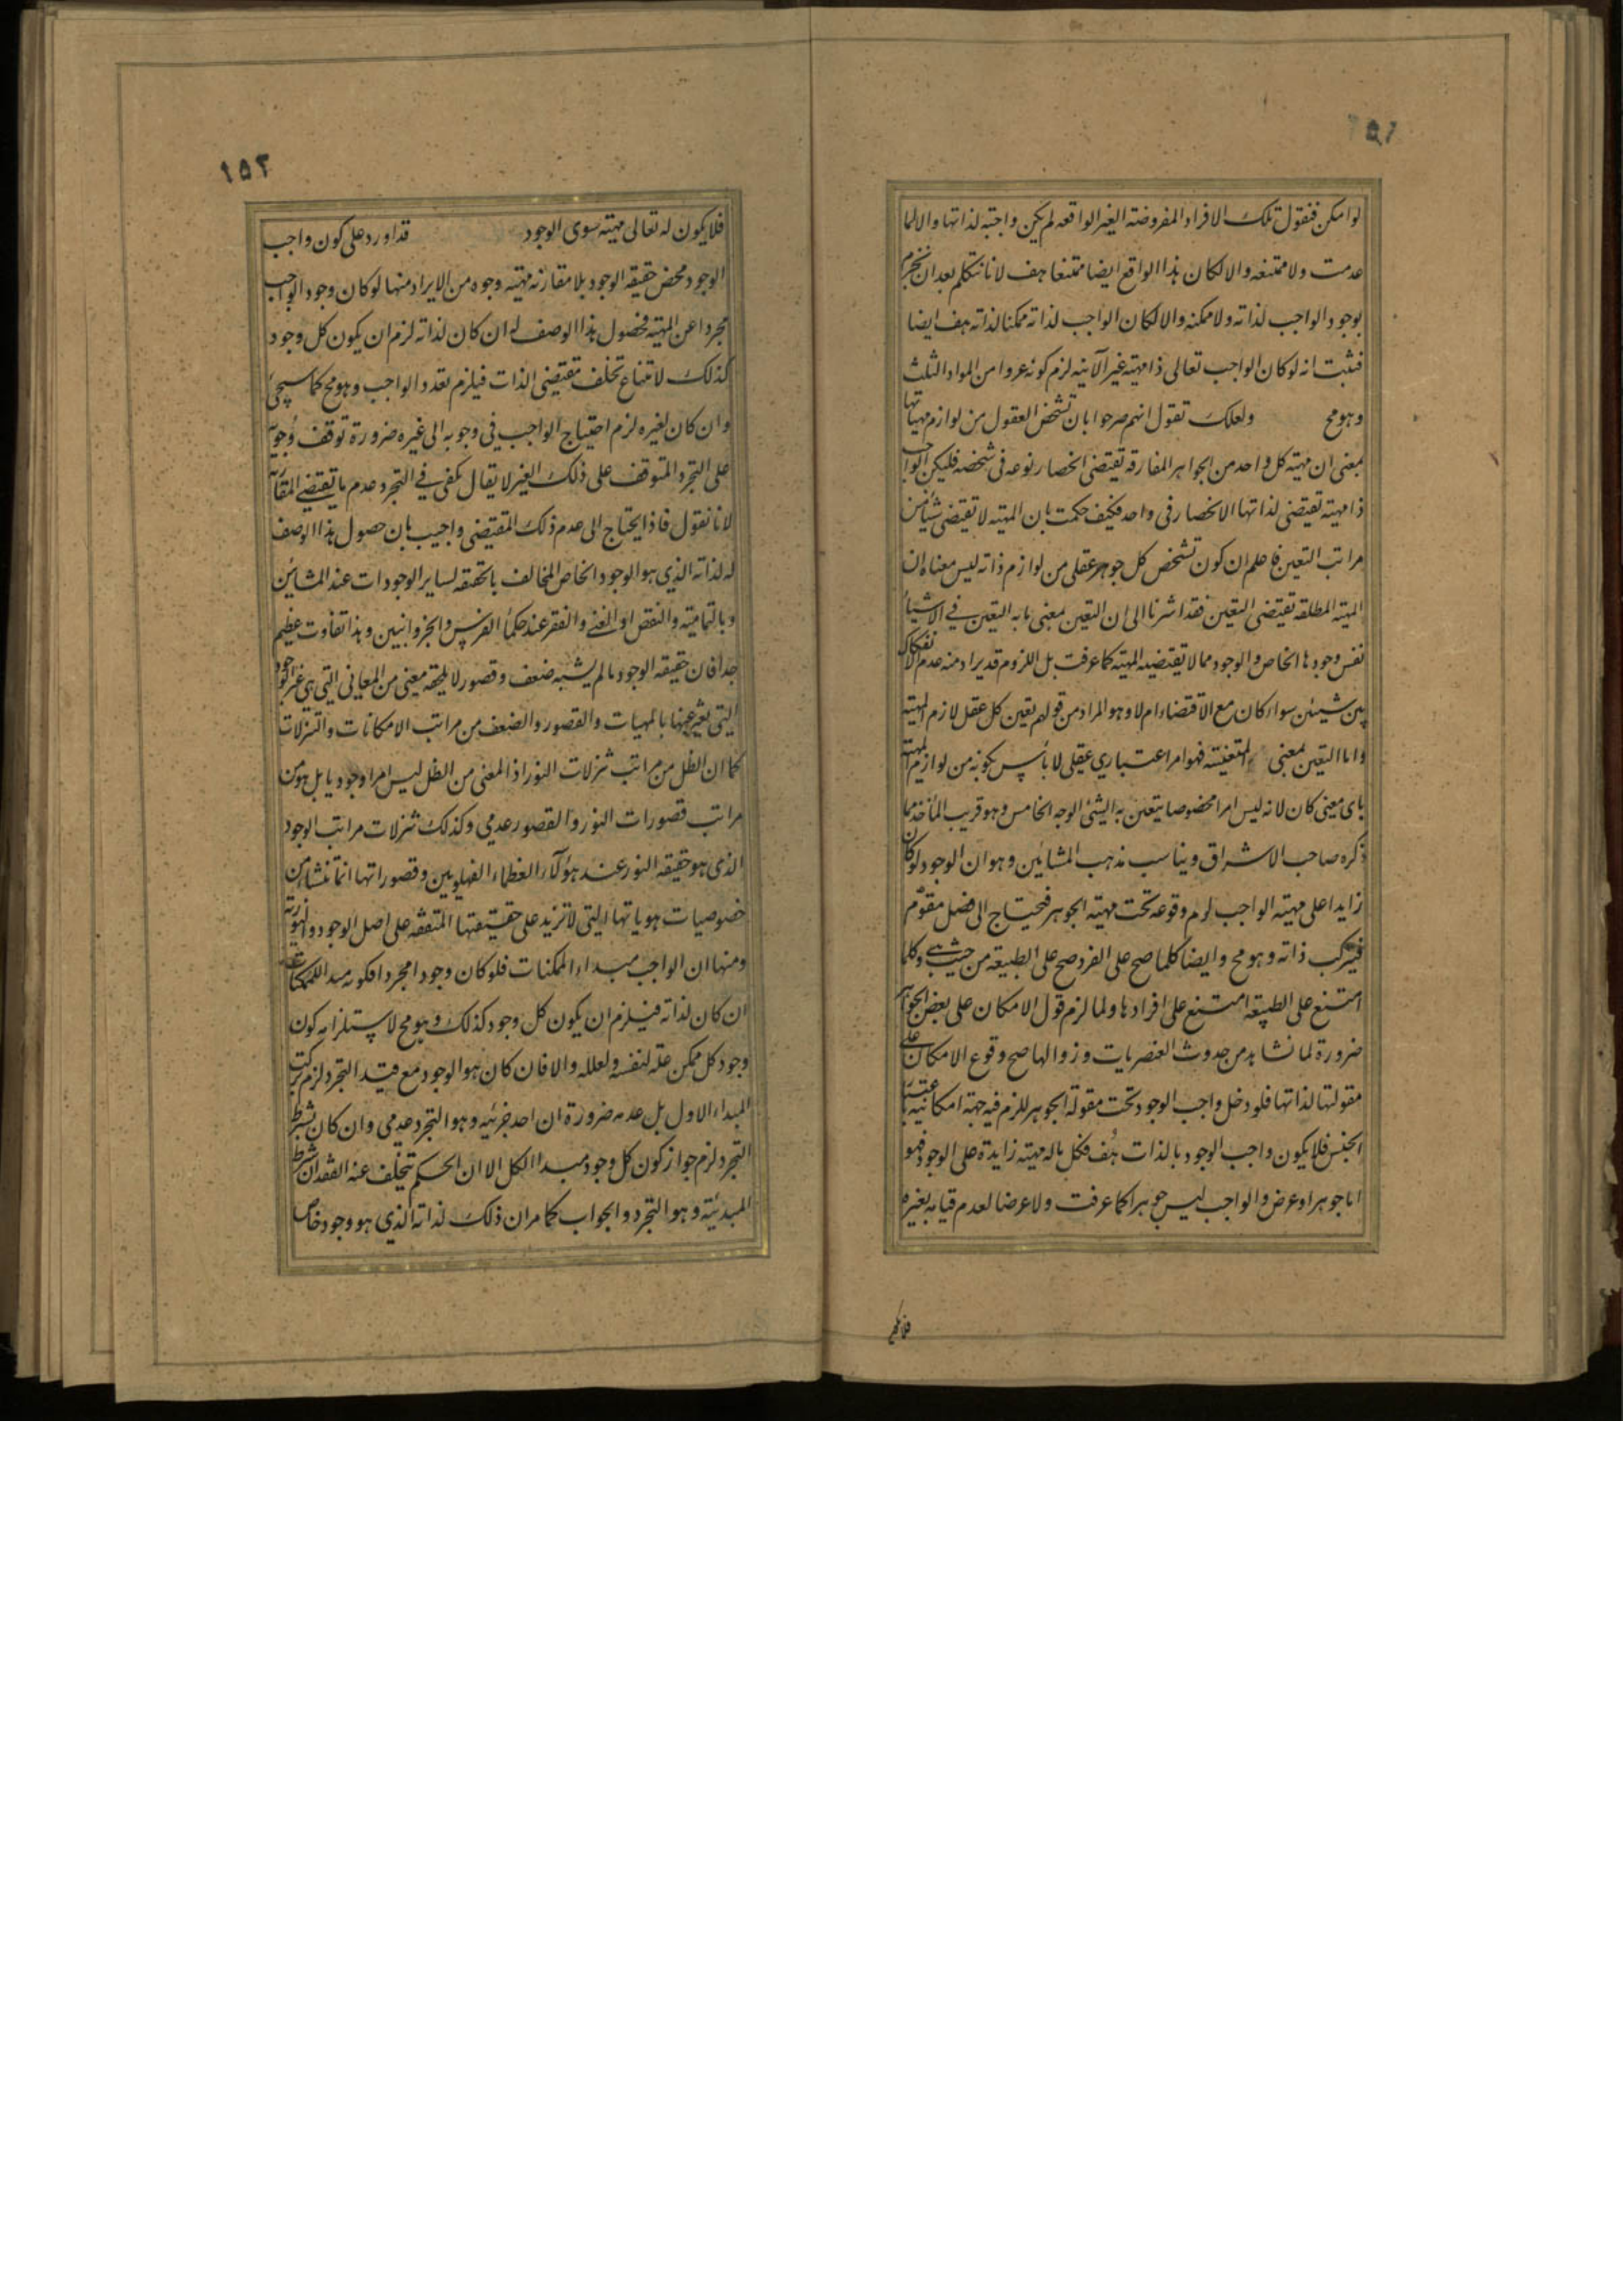 ١٥١
لو امكن فنقول تلك الافراد المفروضة الغير الواقعه لم يكن واجبة لذاتها والا لما
عدمت ولا ممتنعه والا لكان هذا الواقع ايضا ممتنعا هف لانا نتكلم بعد ان نجزم
بوجود الواجب لذاته ولا ممكنه والا لكان الواجب لذاته ممكنا لذاته هف ايضا
فثبت انه لو كان الواجب تعالى ذا مهية غير الآنيه لزم كونه عروا من المواد الثلث
وهو مح ولعلك تقول انهم صرحوا بان تشخص العقول من لوازم مهياتها
بمعنى ان مهية كل واحد من الجواهر المفارقه تقتضى انحصار نوعه فى شخصه فليكن الواجب
ذا مهية تقتضى لذاتها الانحصار فى واحد فكيف حكمت بان المهية لا تقتضى شيئا من
مراتب التعين فاعلم ان كون تشخص كل جوهر عقلى من لوازم ذاته ليس معناه ان
المهية المطلقه تقتضى التعين فقد اشرنا الى ان التعين بمعنى ما به التعين فى الاشياء
نفس وجودها الخاص والوجود مما لا تقتضيه المهية كما عرفت بل اللزوم قد يراد منه عدم الانفكاك
بين شيئين سواء كان مع الاقتضاء ام لا وهو المراد من قولهم تعين كل عقل لازم لمهيته
واما التعين بمعنى المتعينية فهو امر اعتبارى عقلى لا باس بكونه من لوازم المهية
باى معنى كان لانه ليس امرا مخصوصا يتعين به الشئ الوجه الخامس وهو قريب الماخذ مما
ذكره صاحب الاشراق ويناسب مذهب المشائين وهو ان الوجود لو كان
زايدا على مهية الواجب لزم وقوعه تحت مهية الجوهر فيحتاج الى فصل مقوّم
فيتركب ذاته وهو مح وايضا كلما صح على الفرد صح على الطبيعه من حيث هى وكلما
امتنع على الطبيعه امتنع على افرادها ولما لزم قول الامكان على بعض الجواهر
ضرورة لما نشاهد من حدوث العنصريات وزوالها صح وقوع الامكان على
مقولتها لذاتها فلو دخل واجب الوجود تحت مقولة الجوهر للزم فيه جهة امكانية باعتبار
الجنس فلا يكون واجب الوجود بالذات هف فكل ما له مهية زايدة على الوجود فهو
اما جوهر او عرض والواجب ليس جوهرا كما عرفت ولا عرضا لعدم قيامه بغيره
فلا يكون
١٥٢
فلا يكون له تعالى مهية سوى الوجود قد اورد على كون واجب
الوجود محض حقيقة الوجود بلا مقارنة مهية وجوه من الايراد منها لو كان وجود الواجب
مجردا عن المهية فحصول هذا الوصف له ان كان لذاته لزم ان يكون كل وجود
كذلك لامتناع تخلف مقتضى الذات فيلزم تعدد الواجب وهو مح كما سيجئ
وان كان لغيره لزم احتياج الواجب فى وجوبه الى غيره ضرورة توقف وجوبه
على التجرد المتوقف على ذلك الغير لا يقال يكفى فى التجرد عدم ما يقتضى المقارنة
لانا نقول فاذا يحتاج الى عدم ذلك المقتضى واجيب بان حصول هذا الوصف
له لذاته الذى هو الوجود الخاص المخالف بالحقيقه لساير الوجودات عند المشائين
وبالتمامية والنقص او الغنى والفقر عند حكماء الفرس والخزوانيين وهذا تفاوت عظيم
جدا فان حقيقة الوجود ما لم يشبه ضعف وقصور لا يلحقه معنى من المعانى التى هى غير الوجود
التى يعبر عنها بالمهيات والقصور والضعف من مراتب الامكانات والتنزلات
كما ان الظل من مراتب تنزلات النور اذ المعنى من الظل ليس امرا وجوديا بل هو من
مراتب قصورات النور والقصور عدمى وكذلك تنزلات مراتب الوجود
الذى هو حقيقة النور عند هؤلاء العظماء الفهلويين وقصوراتها انما تنشاء من
خصوصيات هوياتها التى لا تزيد على حقيقتها المتفقه على اصل الوجود والنورية
ومنها ان الواجب مبداء الممكنات فلو كان وجودا مجردا فكونه مبدا للممكنات
ان كان لذاته فيلزم ان يكون كل وجود كذلك وهو مح لاستلزامه كون
وجود كل ممكن علة لنفسه ولعلله والا فان كان هو الوجود مع قيد التجرد لزم تركب
المبداء الاول بل عدمه ضرورة ان احد جزئيه وهو التجرد عدمى وان كان بشرط
التجرد لزم جواز كون كل وجود مبدا الكل الا ان الحكم تخلف عنه لفقدان شرط
المبدئية وهو التجرد والجواب كما مر ان ذلك لذاته الذى هو وجود خاص